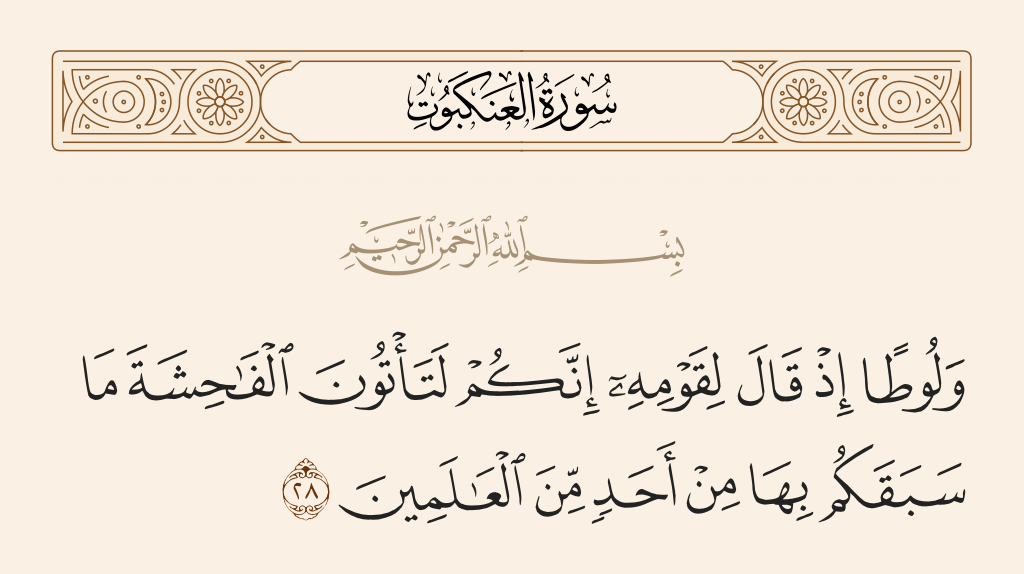 سُورَةُ العَنكَبُوتِ
بِسْمِ ٱللَّهِ ٱلرَّحْمَٰنِ ٱلرَّحِيمِ
وَلُوطًا إِذْ قَالَ لِقَوْمِهِۦٓ إِنَّكُمْ لَتَأْتُونَ ٱلْفَٰحِشَةَ مَا
سَبَقَكُم بِهَا مِنْ أَحَدٍ مِّنَ ٱلْعَٰلَمِينَ ٢٨